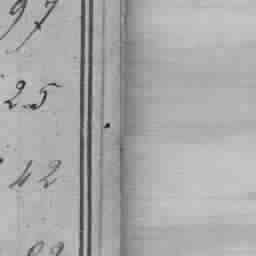 97
25
42